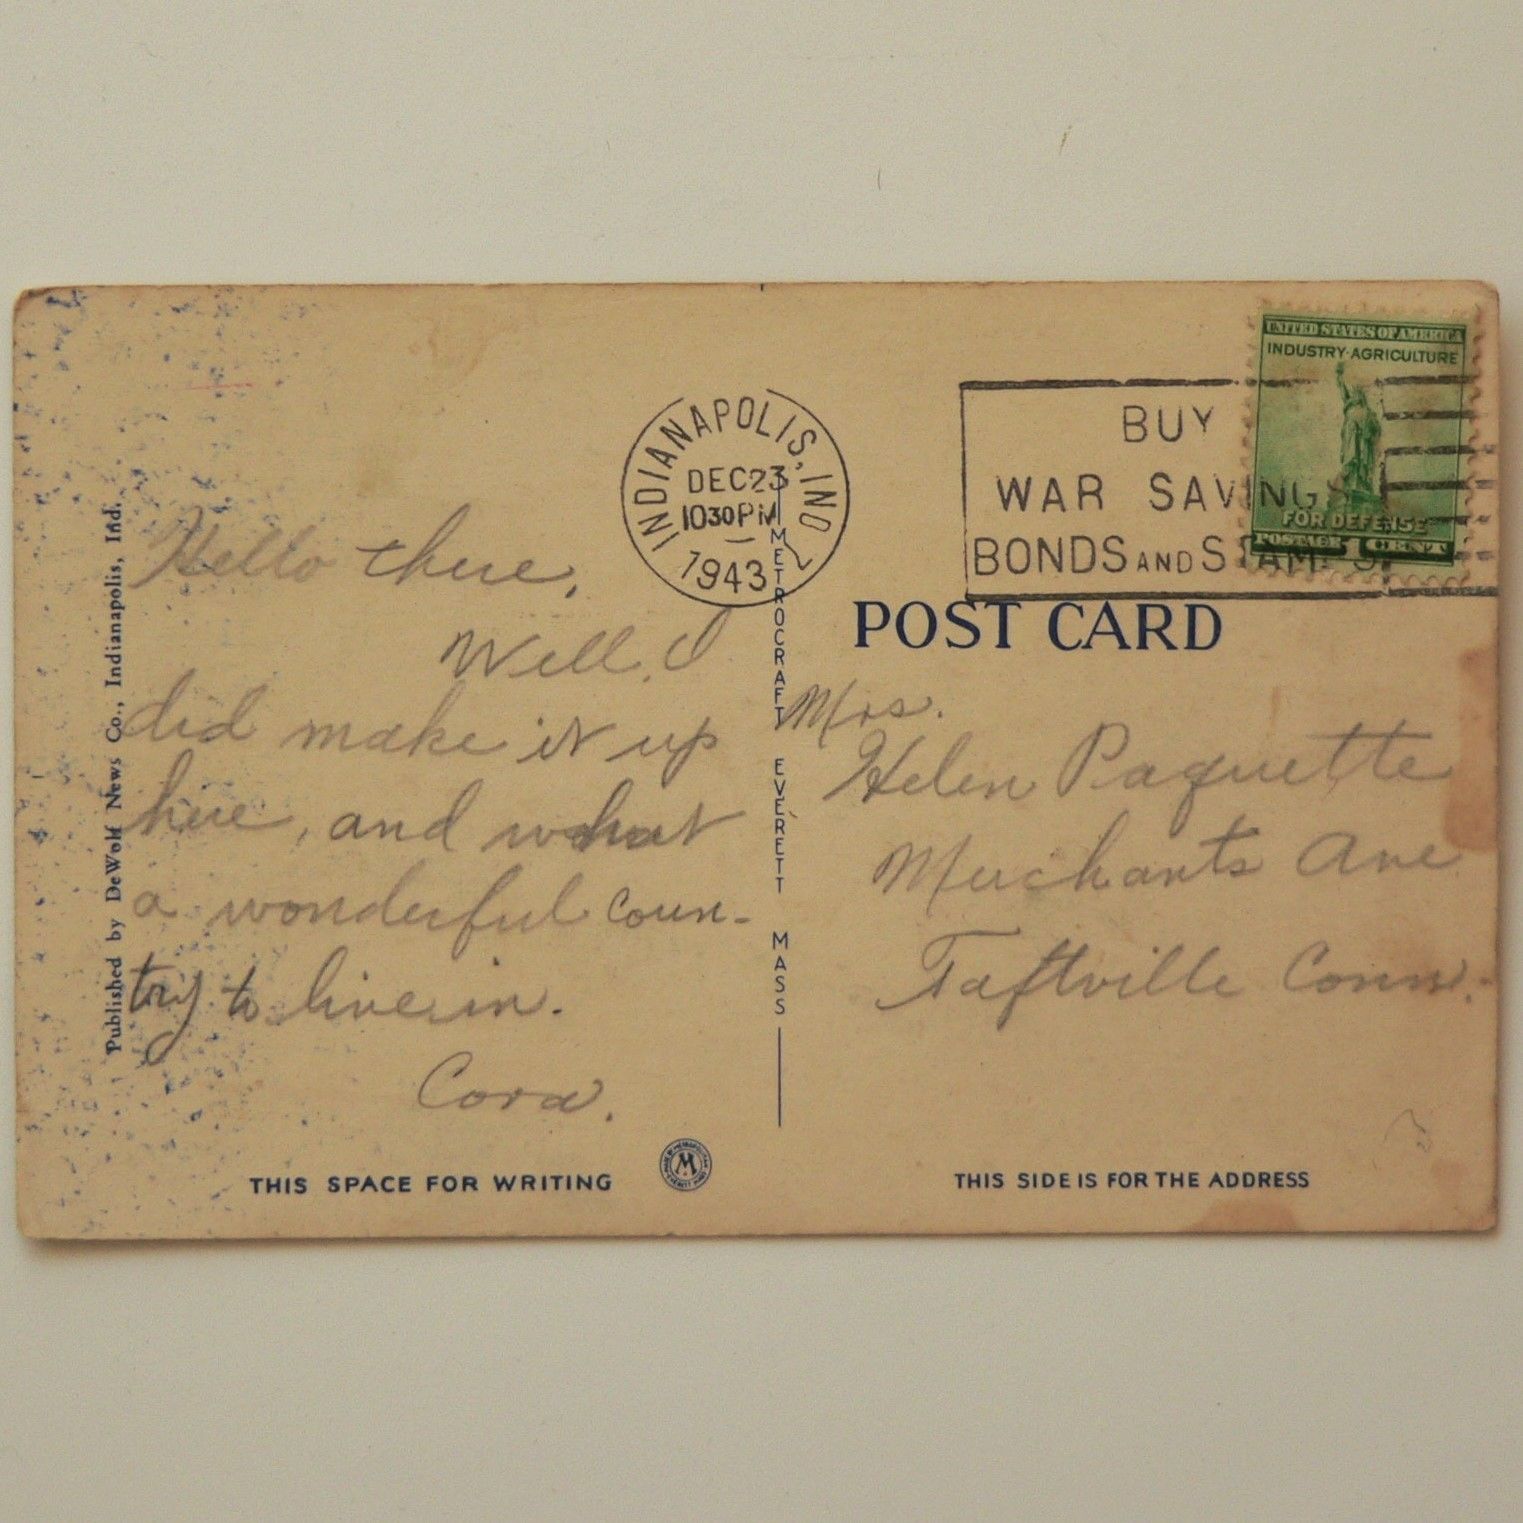 Published by DeWolf News Co., Indianapolis, Ind.
Hello there,
Well, I
did make it up
here, and what
a wonderful coun-
try to live in.
Cora.
THIS SPACE FOR WRITING
INDIANAPOLIS, IND
DEC 23
1030 PM
1943
2
METROCRAFT EVERETT MASS
BUY
WAR SAVINGS
BONDS AND STAMPS
UNITED STATES OF AMERICA
INDUSTRY·AGRICULTURE
FOR DEFENSE
POSTAGE 1 CENT
POST CARD
Mrs.
Helen Paquette
Merchants Ave
Taftville Conn.
M
THIS SIDE IS FOR THE ADDRESS